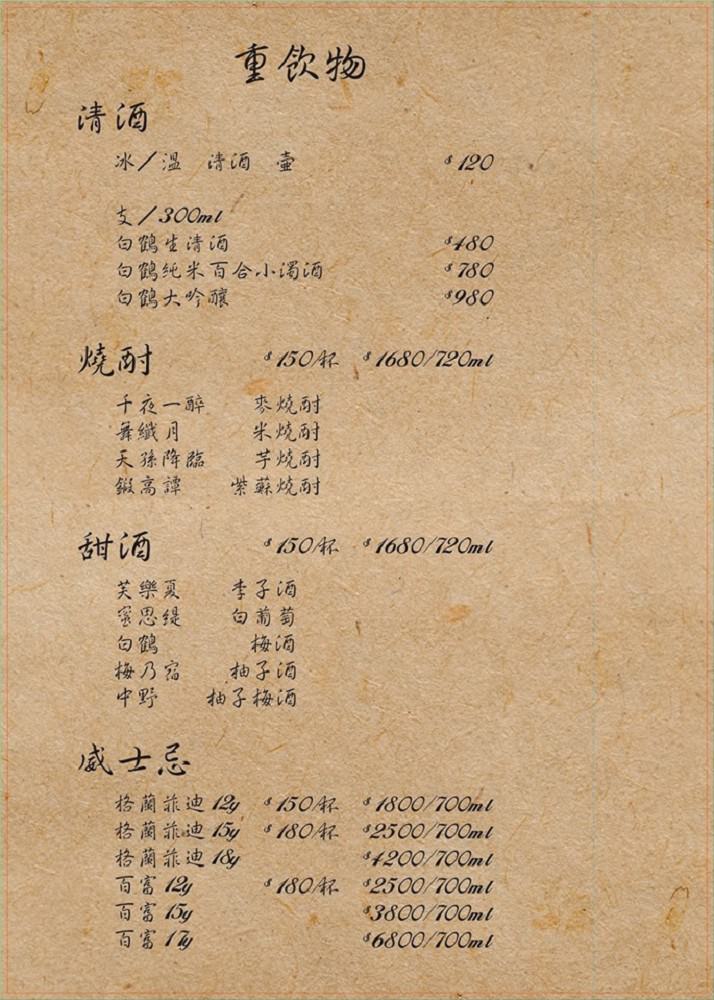 重飲物
清酒
冰/溫 清酒 壺 $120
支/300ml
白鶴生清酒 $480
白鶴純米百合小濁酒 $780
白鶴大吟釀 $980
燒酎 $150/杯 $1680/720ml
千夜一醉 麥燒酎
舞纖月 米燒酎
天孫降臨 芋燒酎
鍛高譚 紫蘇燒酎
甜酒 $150/杯 $1680/720ml
芙樂夏 李子酒
蜜思緹 白葡萄
白鶴 梅酒
梅乃宿 柚子酒
中野 柚子梅酒
威士忌
格蘭菲迪 12y $150/杯 $1800/700ml
格蘭菲迪 15y $180/杯 $2500/700ml
格蘭菲迪 18y $4200/700ml
百富 12y $180/杯 $2500/700ml
百富 15y $3800/700ml
百富 17y $6800/700ml